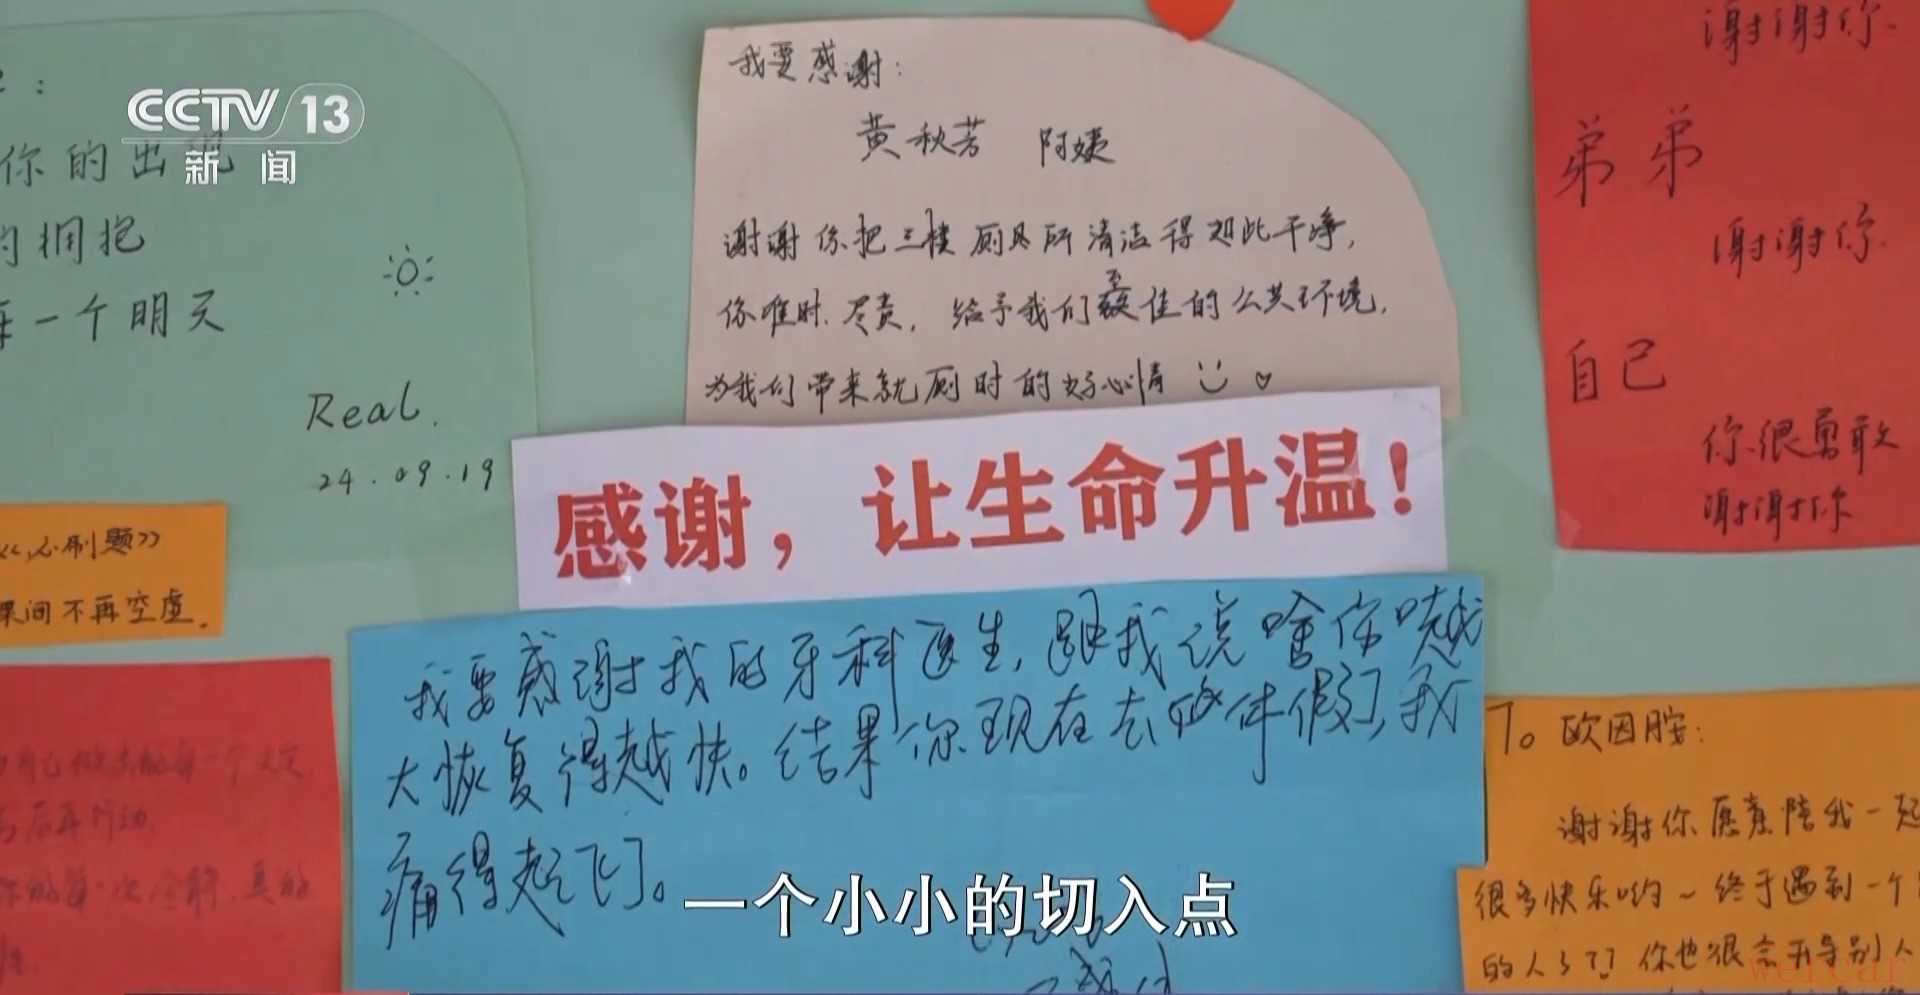 CCTV 13
新闻
你的出现
的拥抱
一个明天
Real.
24.09.19
我要感谢:
黄秋芳 阿姨
谢谢你把三楼厕所清洁得如此干净,
你准时、尽责,给予我们至佳的公共环境,
为我们带来就厕时的好心情
谢谢你.
弟弟
谢谢你.
自己
你很勇敢
谢谢你
感谢，让生命升温！
《必刷题》
课间不再空虚.
我要感谢我的牙科医生,跟我说啥你咙越
大恢复得越快。结果你现在去休假了,我
痛得起飞了。
To 欧因胺:
谢谢你愿意陪我一起
很多快乐哟~终于遇到一个
的人了?? 你也很会开导别人
一个小小的切入点